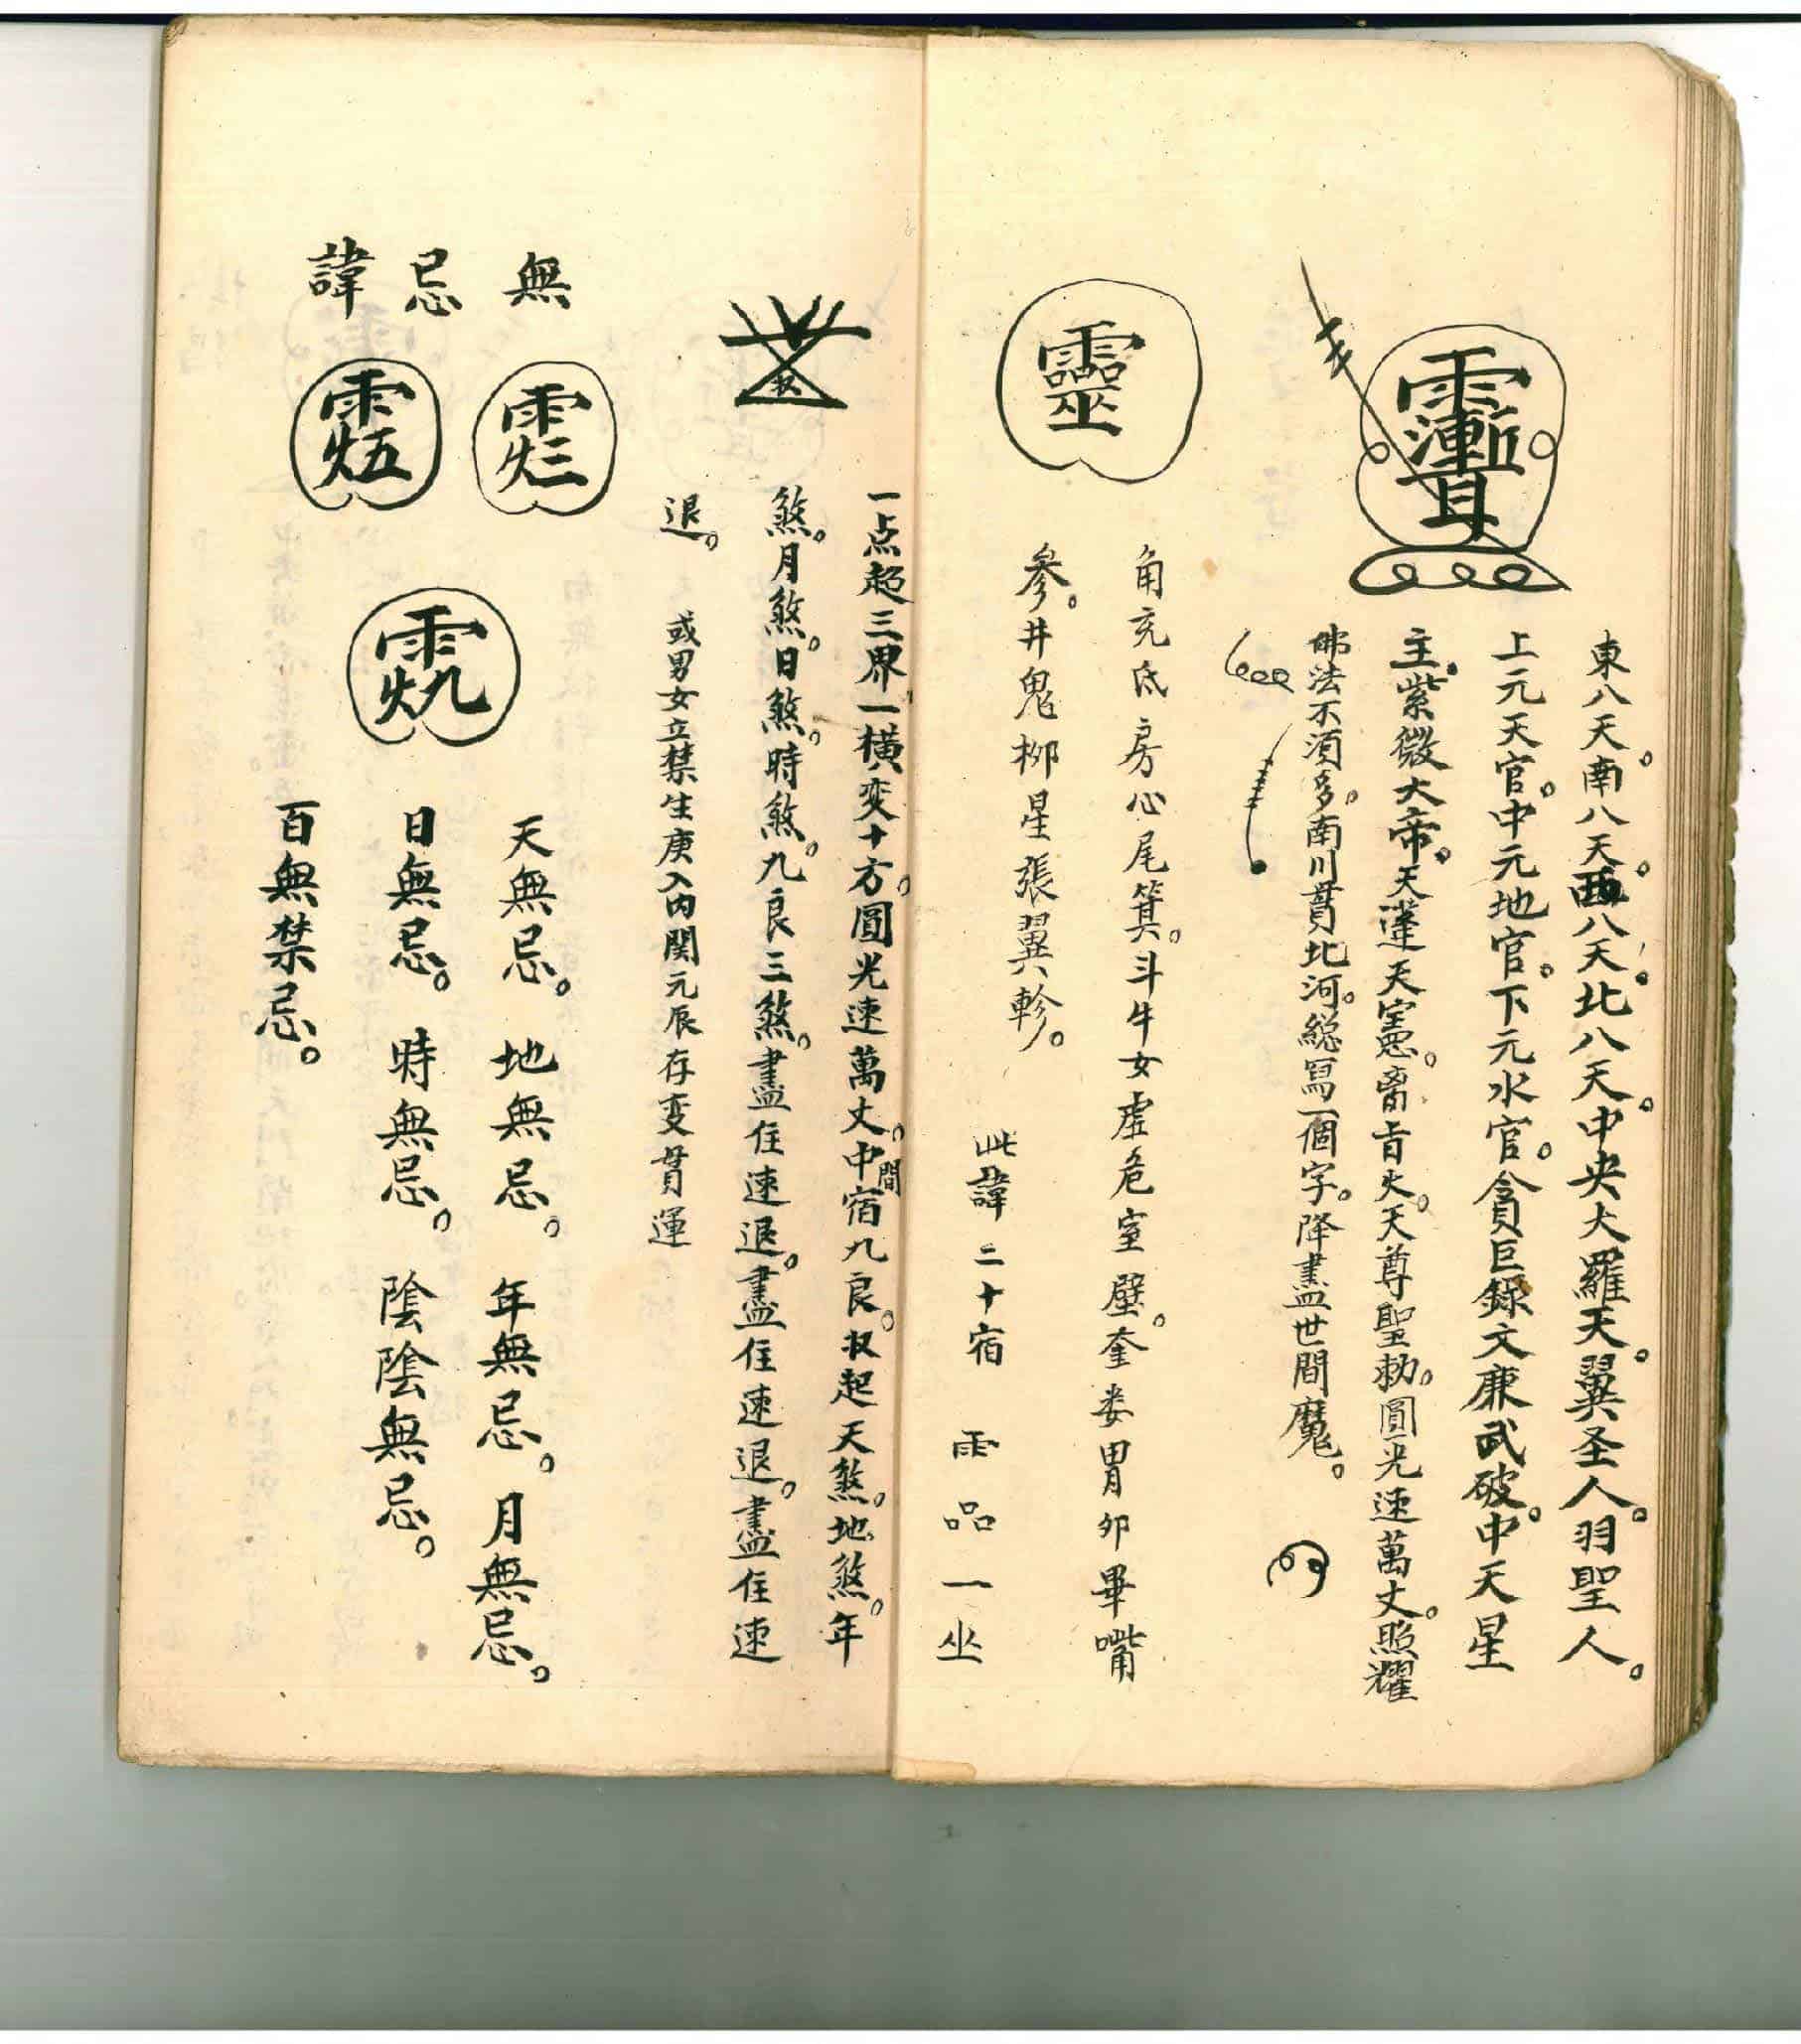 東八天。南八天。西八天。北八天。中央大羅天。翼圣人。羽聖人。
上元天官。中元地官。下元水官。貪巨録文廉武破。中天星
主。紫微大帝。天蓬天。天尊聖勑。圓光速萬丈。照耀
佛法不須多。南川貫北河。総冩一個字。降盡世間魔。
靈
角亢氐房心尾箕。斗牛女虚危室壁。奎娄胃卯畢嘴
参。井鬼柳星張翼軫。
此諱二十宿 雨品一坐
一点起三界。一横变十方。圓光速萬丈。中間宿九良。収起天煞。地煞。年
煞。月煞。日煞。時煞。九良三煞。盡住速退。盡住速退。盡住速
退。 或男女立禁生庚入内関元辰存变貫運
無忌諱
天無忌。 地無忌。 年無忌。月無忌。
日無忌。 時無忌。 陰陰無忌。
百無禁忌。